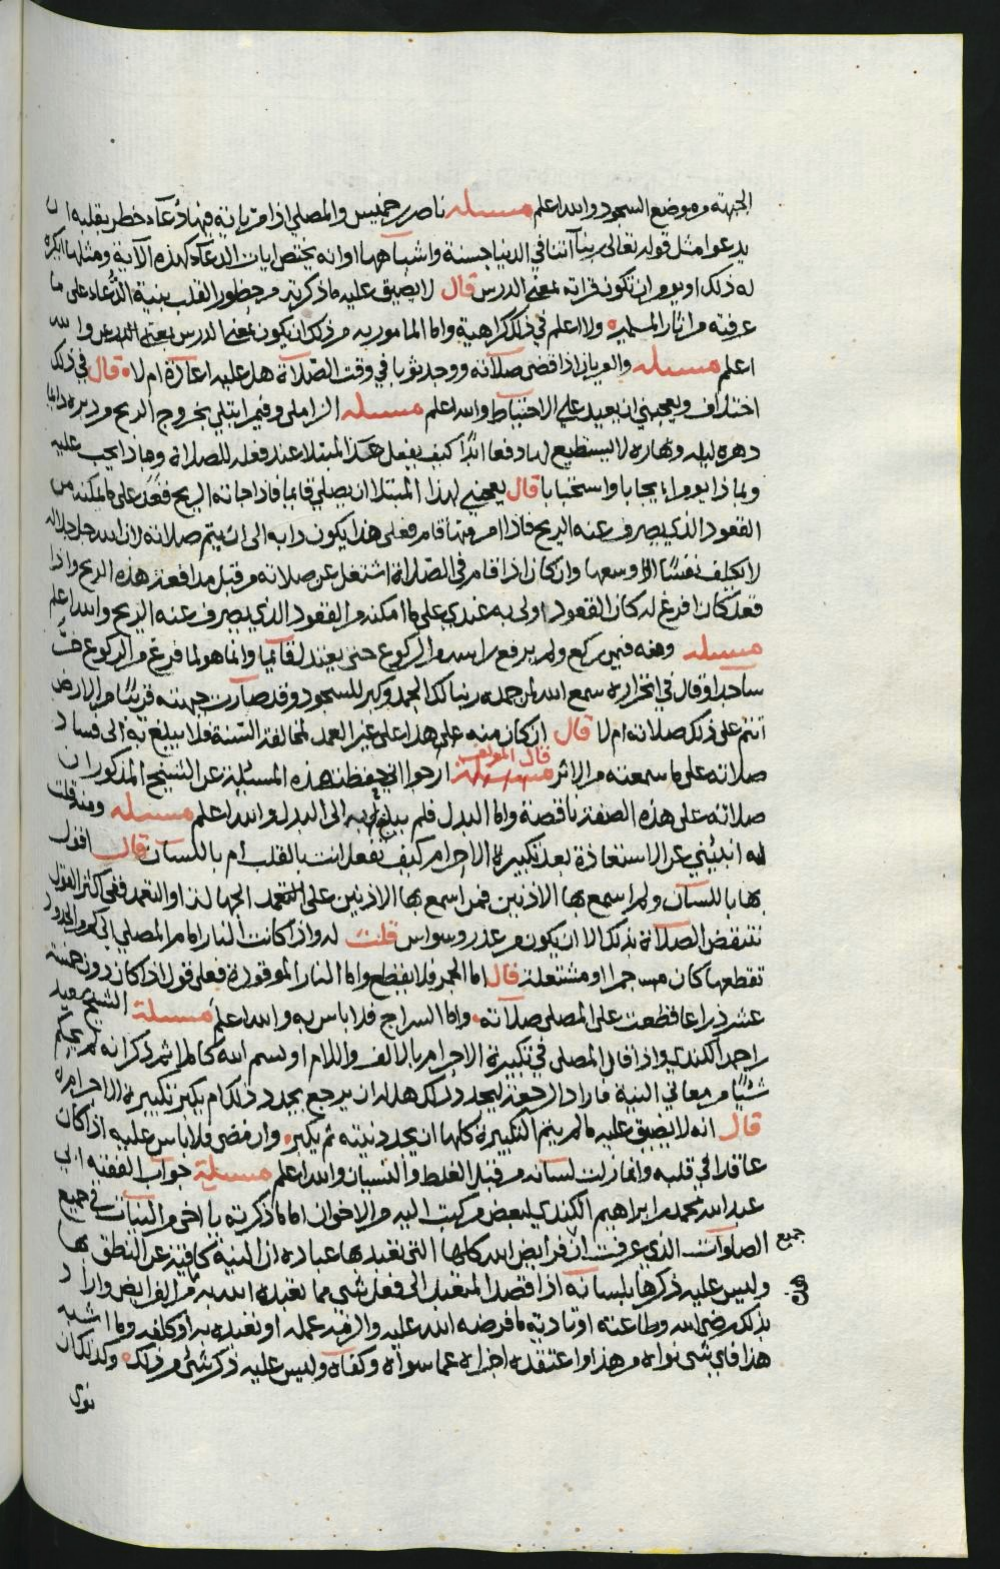 الجبهة من موضع السجود والله اعلم مسئلة ناصر بن خميس والمصلي اذا مر باية فيها دعاء خطر بقلبه ان
يدعو مثل قوله تعالى ربنا آتنا في الدنيا حسنة واشباهها او انه يختص ايات الدعاء كهذه الآية ومثلها ايكره
له ذلك او يومر ان تكون قراته بمعنى الدرس قال لا يضيق عليه ما ذكرته من حظور القلب بنية الدعاء على ما
عرفته من اثار المسلمين ولا اعلم في ذلك كراهية واما المامور به من ذلك ان يكون بمعنى الدرس والله
اعلم مسئلة والعريان اذا قضى صلاته ووجد ثوبا في وقت الصلاة هل عليه اعادة ام لا قال في ذلك
اختلاف ويعجبني ان يعيد على الاحتياط والله اعلم مسئلة الزاملي وفيمن ابتلي بخروج الريح من دبره دايما
دهره ليله ونهاره لا يستطيع لها دفعا ابدا كيف يفعل هذا المبتلا عند فعله للصلاة وماذا يجب عليه
وبماذا يومر ايجابا واستحبابا قال يعجبني لهذا المبتلا ان يصلي قايما فاذا جاته الريح قعد على ما امكنه من
القعود الذي يصرف عنه الريح فاذا امن منها قام فعلى هذا يكون دابه الى ان يتم صلاته لان الله جل جلاله
لا يكلف نفسا الا وسعها وان كان اذا قام في الصلاة اشتغل عن صلاته من قبل مدافعة هذه الريح واذا
قعد كان افرغ له كان القعود اولى به عندي على ما امكنه من القعود الذي يصرف عنه الريح والله اعلم
مسئلة ومنه فيمن ركع ولم يرفع راسه من الركوع حتى يعتدل قايما وانما هو لما فرغ من الركوع خر
ساجدا وقال في انحراره سمع الله لمن حمده ربنا لك الحمد وكبر للسجود وقد صارت جبهته قريبا من الارض
اتتم على ذلك صلاته ام لا قال ان كان منه على هذا على غير العمد لمخالفة السنة فلا يبلغ به الى فساد
صلاته على ما سمعته من الاثر قال المولف ارجو اني حفظت هذه المسئلة عن الشيخ المذكور ان
صلاته على هذه الصفة ناقصة واما البدل فلم يبلغ به الى البدل والله اعلم مسئلة ومنه قلت
له انبئني عن الاستعاذة بعد تكبيرة الاحرام كيف تفعل انت بالقلب ام باللسان قال اقول
بها باللسان ولم اسمع بها الاذنين فمن اسمع بها الاذنين على التعمد الجهالة او التعمد ففي اكثر القول
تنتقض الصلاة بذلك الا ان يكون من عذر وسواس قلت له واذا كانت النار امام المصلي
تقطعها كان جمرا او مشتعلة قال اما الجمر فلا يقطع واما النار الموقودة فعلى قول اذا كان دون خمسة
عشر ذراعا قطعت على المصلي صلاته واما السراج فلا باس به والله اعلم مسئلة الشيخ سعيد
بن احمد الكندي واذا قال المصلي في تكبيرة الاحرام بالالف واللام او بسم الله كاملا ثم ذكر انه لم يحكم
شيئا من معاني النية فاراد الرجوع ليجدد ذلك هل له ان يرجع يجدد ذلك ام يكبر تكبيرة الاحرام
قال انه لا يضيق عليه ما لم يتم التكبيرة كلها ان يجدد نيته ثم يكبر وان مضى فلا باس عليه اذا كان
عاقدا في قلبه وانما زلت لسانه من قبل الغلط والنسيان والله اعلم مسئلة جواب الفقيه ابي
عبدالله محمد بن ابراهيم الكندي لبعض من كتب اليه من الاخوان اما ما ذكرته يا اخي من النيات في جميع
جميع
الصلوات الذي عرفت ان فرايض الله كلها التي تعبد بها عباده ان النية كافية عن النطق بها
وليس عليه ذكرها بلسانه اذا قصد المتعبد الى فعل شي مما تعبده الله به من الفرايض واراد
بذلك رضى الله وطاعته او تادية ما فرضه الله عليه والزمه عمله او تعبده به او كلفه وما اشبه
هذا فاي شي نواه من هذا واعتقده اجزاه عما سواه وكفاه وليس عليه ذكر شي من ذلك وكذلك ان
نوى